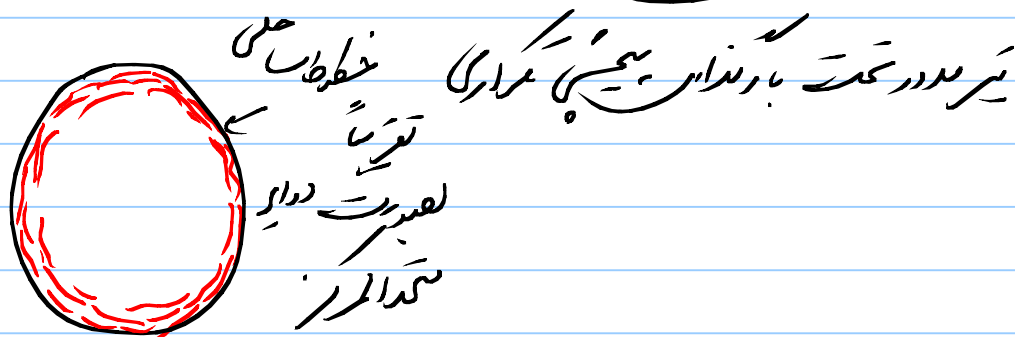 تیر مدور تحت بارگذاری پیچشی تکراری
خطوط ساحلی
تقریباً
بصورت دوایر
متحدالمرکز